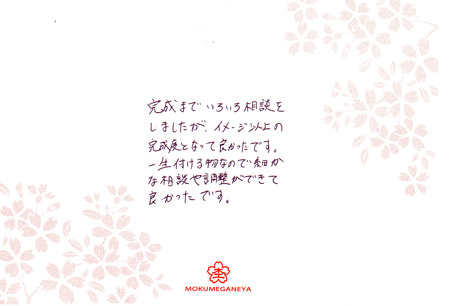 完成までいろいろ相談を
しましたが、イメージ以上の
完成度となって良かったです。
一生付ける物なので細か
な相談や調整ができて
良かったです。
MOKUMEGANEYA